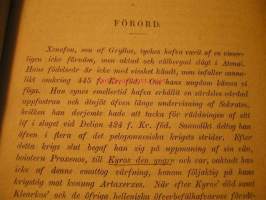 FÖRORD.
Xenofon, son af Gryllus, tyckes hafva varit af en visser-
ligen icke förnäm, men aktad och välbergad slägt i Atena.
Hans födelseår är icke med visshet kändt, men infaller sanno-
likt omkring 445 f. Kr. Om hans ungdom känna vi
föga. Han synes emellertid hafva erhållit en särdeles vårdad
uppfostran och åtnjöt äfven länge undervisning af Sokrates,
hvilken han derjemte hade att tacka för räddningen af sitt
lif i slaget vid Delion 424 f. Kr. föd. Sannolikt deltog han
äfven i flera af det peloponnesiska krigets strider. Efter
krigets slut begaf han sig på uppmaning af sin vän,
boiotern Proxenos, till Kyros den yngre och var, oaktadt han
icke af denne emottog värfning, honom följaktig på hans
krigståg mot konung Artaxerxes. När efter Kyros' död samt
Klearkos' och de öfriga helleniska öfverbefälhafvarnes